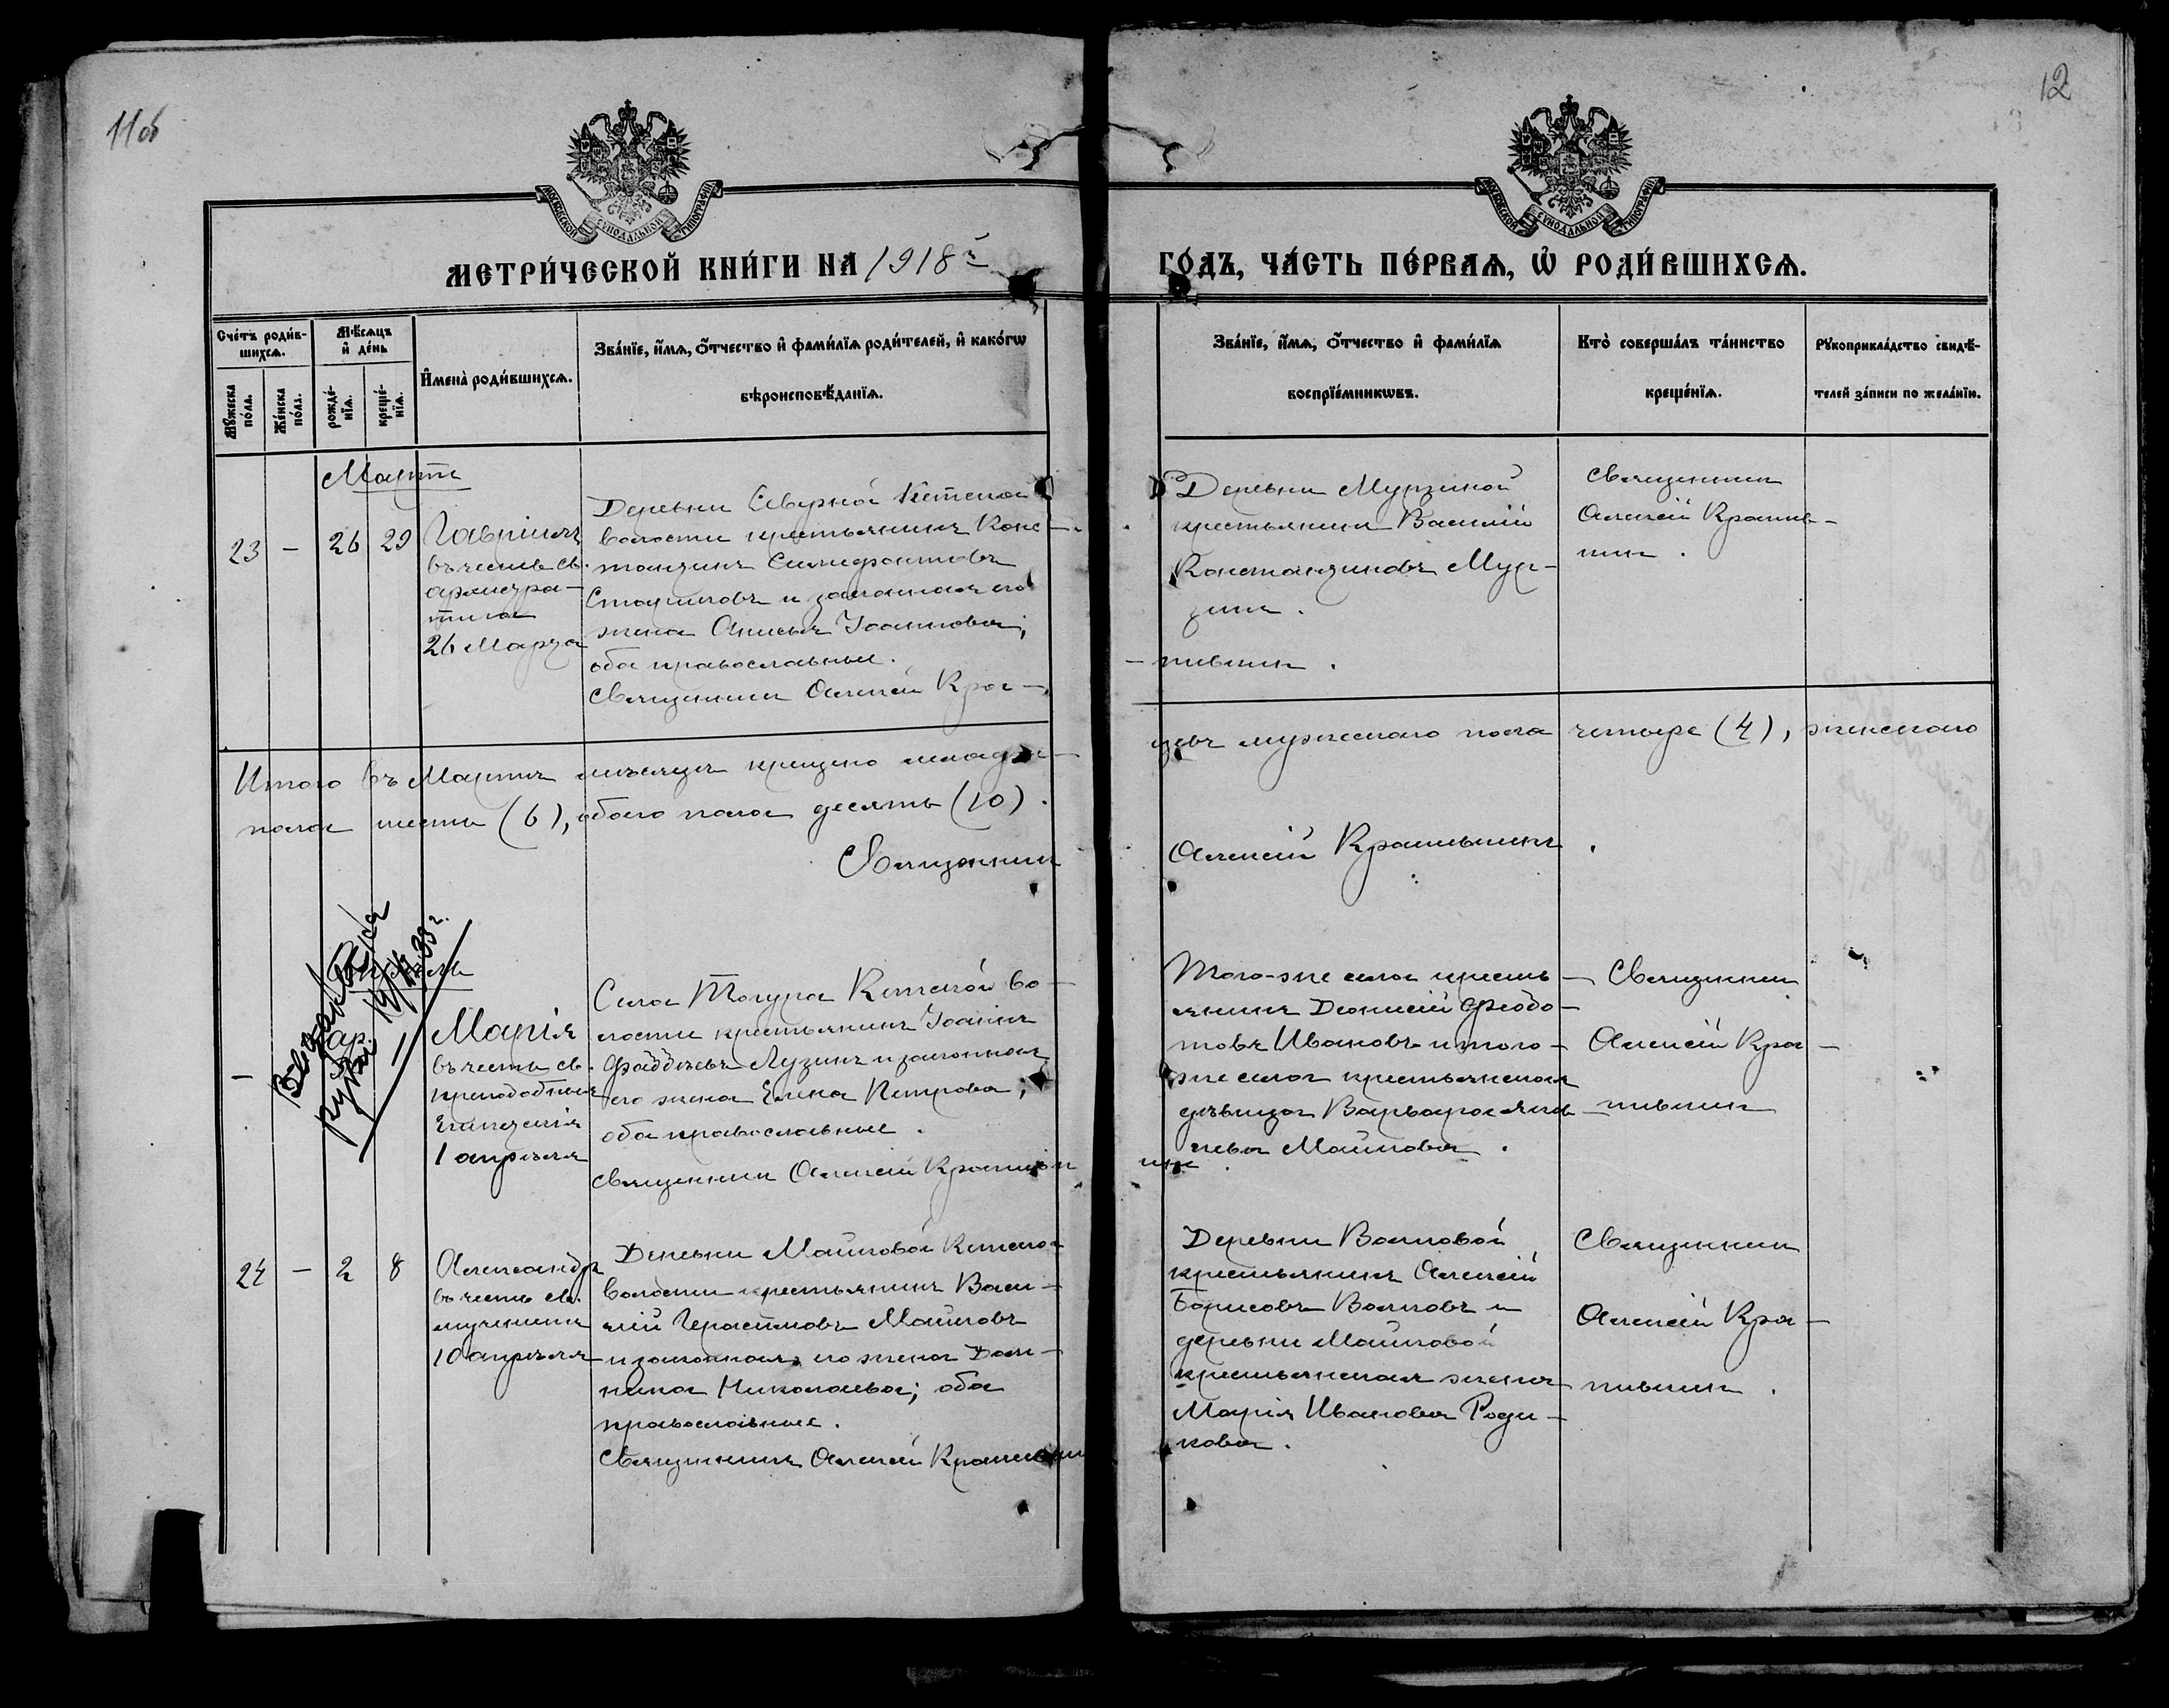 11об
12
МОСКОВСКОЙ СѴНОДАЛЬНОЙ ТИПОГРАФІИ
МОСКОВСКОЙ СѴНОДАЛЬНОЙ ТИПОГРАФІИ
МЕТРИ́ЧЕСКОЙ КНИ́ГИ НА 1918й
ГО́ДЪ, ЧА́СТЬ ПЕ́РВАѦ, Ѡ҆ РОДИ́ВШИХСѦ.
Сче́тъ роди́в-
шихсѧ.
Мѣ́сѧцъ
и҆ де́нь
Мꙋ́жеска
по́ла.
Же́нска
по́ла.
рожде́-
нїѧ.
креще́-
нїѧ.
И҆мена̀ роди́вшихсѧ.
Зва́нїе, и҆́мѧ, ѻ҆́тчество и҆ фами́лїѧ роди́телей, и҆ како́гѡ
вѣроисповѣ́данїѧ.
Зва́нїе, и҆́мѧ, ѻ҆́тчество и҆ фами́лїѧ
воспрїе́мникѡвъ.
Кто̀ соверша́лъ та́инство
креще́нїѧ.
Рꙋкоприкла́дство свидѣ́-
телей за́писи по жела́нїю.
Мартъ
23 - 26 29
Гавріилъ
въ честь св.
архистра-
тига
26 Марта
Деревни Северной Кетской
волости крестьянинъ Конс-
тантинъ
Стариковъ и законная его
жена Анисья Іоаннова;
оба православные.
Священникъ Алексій Кра-
Деревни Мурзиной
крестьянинъ Василій
Константиновъ Мур-
зинъ.
-пивинъ.
Священникъ
Алексій Крапив-
инъ.
Итого въ Мартѣ мѣсяцѣ крещено младен-
цевъ мужескаго пола четыре (4), женскаго
пола шесть (6), обоего пола десять (10).
Священникъ
Алексій Крапивинъ.
Марія
въ честь св.
преподобныя
1 апрѣля
Села Тогура Кетской во-
лости крестьянинъ Іоаннъ
Фаддѣевъ Лузинъ и законная
его жена Елена Петрова;
оба православные.
Священникъ Алексій Крапив
инъ
Того-же села кресть-
янинъ Діонисій Феодо-
товъ Ивановъ и того-
же села крестьянская
дѣвица Варвара Яков-
лева Майкова.
Священникъ
Алексій Кра-
пивинъ
24 - 2 8
Александръ
въ честь св.
мученика
10 апрѣля
Деревни Майковой Кетской
волости крестьянинъ Васи-
лій Герасимовъ Майковъ
и законная его жена Дом-
ника Николаева; оба
православные.
Священникъ Алексій Крапивинъ
Деревни Волковой
крестьянинъ Алексій
Борисовъ Волковъ и
деревни Майковой
крестьянская жена
Марія Иванова Роди-
кова.
Священникъ
Алексій Кра-
пивинъ.